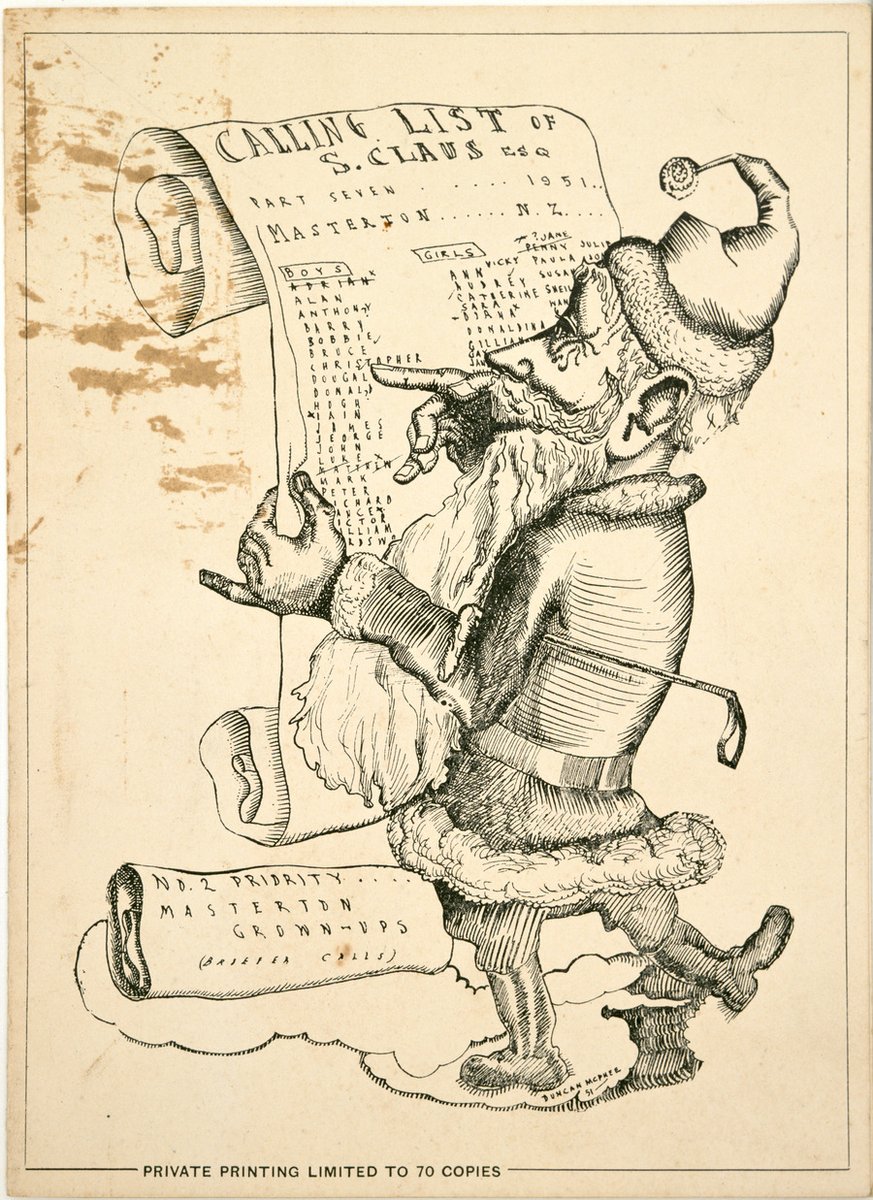 CALLING LIST OF
S. CLAUS ESQ
PART SEVEN . . . . . . 1951..
MASTERTON...... N.Z....
BOYS
ADRIAN
ALAN
ANTHONY
BARRY
BOBBIE
BRUCE
CHRISTOPHER
DOUGAL
DONALD
HUGH
IAIN
JAMES
GEORGE
JOHN
LUKE
MATTHEW
MARK
PETER
GIRLS
? JANE
PENNY JULIE
VICKY PAULA
ANN
AUDREY SUSAN
CATHERINE
SARA
DIANA
DONALDINA
NO.2 PRIORITY.....
MASTERTON
GROWN-UPS
(BRIEFER CALLS)
DUNCAN MCPHEE
51
PRIVATE PRINTING LIMITED TO 70 COPIES